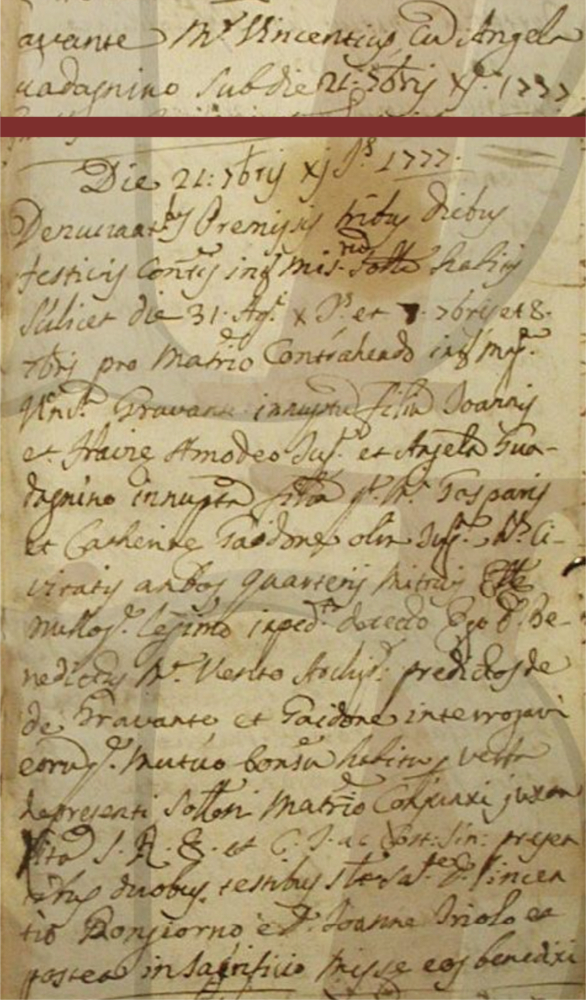 avante Mr. Vincentius Cu Angela
uadagnino Sub die 21: 7bris Xj. 1777
Die 21: 7bris xj Is 1777.
Denunciat. Premissis tribus diebus
festivis int mis. Soll habitis
Scilicet die 31. Ag. x Is et 7bris et 8.
7bris pro Matrio Contrahendo int Mr.
Vinc. Gravante innuptu filiu Joannis
et Amodeo Jug. et Angela Gua-
dagnino innupta filia q. Mr. Gasparis
et Catherine Gaidone olim Jug. Ci-
vitatis ambos quarterij
nulloq. legimo imped. detecto Ego D. Be-
nedictus Mr. predictos de
de Gravante et Gaidone interrogavi
eorumq. mutuo consu habitu p verba
de presenti Sollri Matrio Conjunxi juxta
Rita S. R. E. et C. T. ac Const: Sin: presen
tibus duobus testibus D. Vincen
tio Bongiorno e D. Joanne Triolo et
postea in Sacrificio Misse eos benedixi